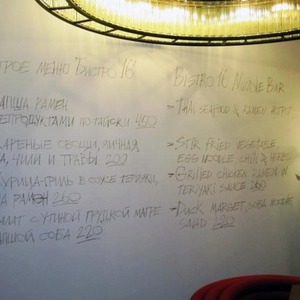 ТРОЕ МЕНЮ "БИСТРО 16"
ЛАПША РАМЕН
РЕПРОДУКТАМИ ПО-ТАЙСКИ 450
АРЕНЫЕ ОВОЩИ, ЯИЧНАЯ
А, ЧИЛИ И ТРАВЫ 200
УРИЦА-ГРИЛЬ В СОУСЕ ТЕРИЯКИ,
РАМЭН 260
ЛАТ С УТИНОЙ ГРУДКОЙ МАГРЕ
АПШОЙ СОБА 220
BISTRO 16 NOODLE BAR
THAI SEAFOOD & RAMEN HOTPOT
STIR FRIED VEGETABLE
EGG NOODLE, CHILI & HERBS
GRILLED CHICKEN RAMEN IN
TERIYAKI SAUCE 260
DUCK MARGET, SOBA NOODLE
SALAD 220